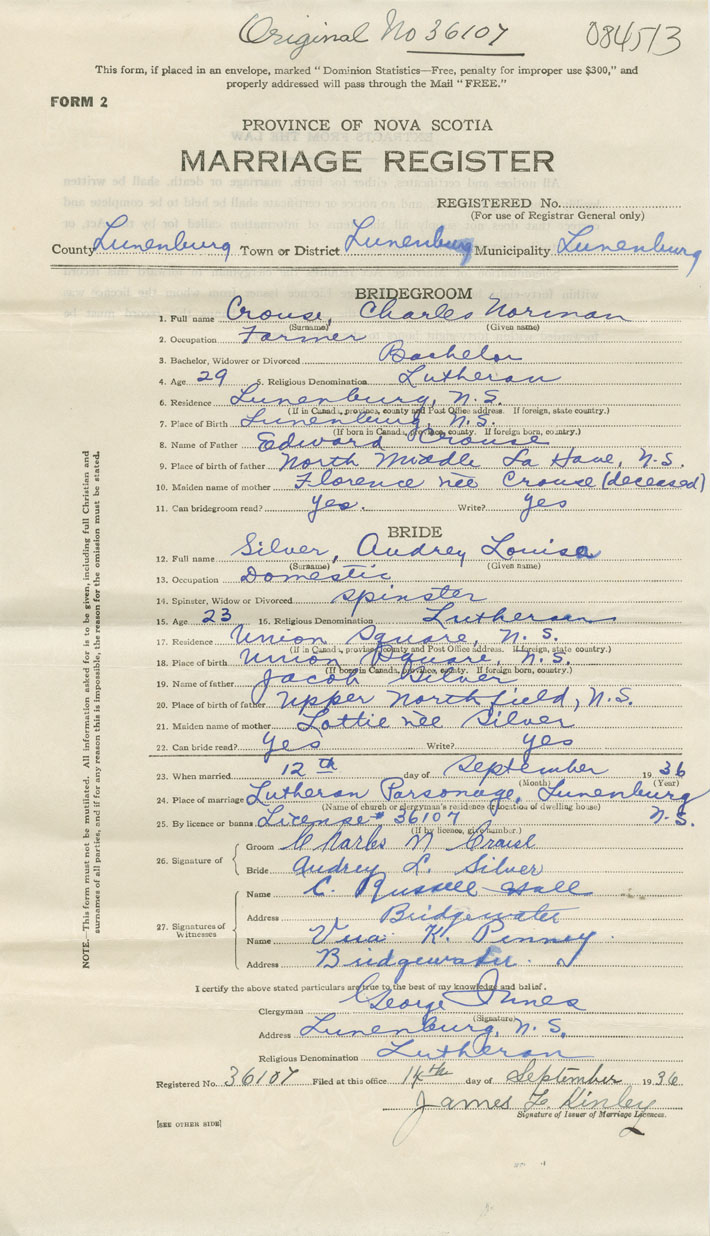 Original No 36107 084513
This form, if placed in an envelope, marked "Dominion Statistics—Free, penalty for improper use $300," and
properly addressed will pass through the Mail "FREE."
FORM 2
PROVINCE OF NOVA SCOTIA
MARRIAGE REGISTER
REGISTERED No.
(For use of Registrar General only)
County Lunenburg Town or District Lunenburg Municipality Lunenburg
BRIDEGROOM
1. Full name Crouse, Charles Norman
(Surname) (Given name)
2. Occupation Farmer
3. Bachelor, Widower or Divorced Bachelor
4. Age 29 5. Religious Denomination Lutheran
6. Residence Lunenburg, N.S.
(If in Canada, province, county and Post Office address. If foreign, state country.)
7. Place of Birth Lunenburg, N.S.
(If born in Canada, province, county. If foreign born, country.)
8. Name of Father Edward Crouse
9. Place of birth of father North Middle La Have, N.S.
10. Maiden name of mother Florence née Crouse (deceased)
11. Can bridegroom read? Yes. Write? Yes
BRIDE
12. Full name Silver, Audrey Louisa
(Surname) (Given name)
13. Occupation Domestic
14. Spinster, Widow or Divorced Spinster
15. Age 23 16. Religious Denomination Lutheran
17. Residence Union Square, N.S.
(If in Canada, province, county and Post Office address. If foreign, state country.)
18. Place of birth Union Square, N.S.
(If born in Canada, province, county. If foreign born, country.)
19. Name of father Jacob Silver
20. Place of birth of father Upper Northfield, N.S.
21. Maiden name of mother Lottie née Silver
22. Can bride read? Yes Write? Yes
23. When married 12th day of September 1936
(Month) (Year)
24. Place of marriage Lutheran Parsonage, Lunenburg
(Name of church or clergyman's residence or location of dwelling house)
N.S.
25. By licence or banns License # 36107
(If by licence, give number.)
26. Signature of
Groom Charles N
Bride Audrey L. Silver
27. Signatures of
Witnesses
Name C. Russell Hall
Address Bridgewater
Name K. Penney
Address Bridgewater.
I certify the above stated particulars are true to the best of my knowledge and belief.
Clergyman George Innes
(Signature)
Address Lunenburg, N.S.
Religious Denomination Lutheran
Registered No. 36107 Filed at this office 14th day of September 1936
James F. Kinley
Signature of Issuer of Marriage Licences.
[SEE OTHER SIDE]
NOTE.—This form must not be mutilated. All information asked for is to be given, including full Christian and
surnames of all parties, and if for any reason this is impossible, the reason for the omission must be stated.